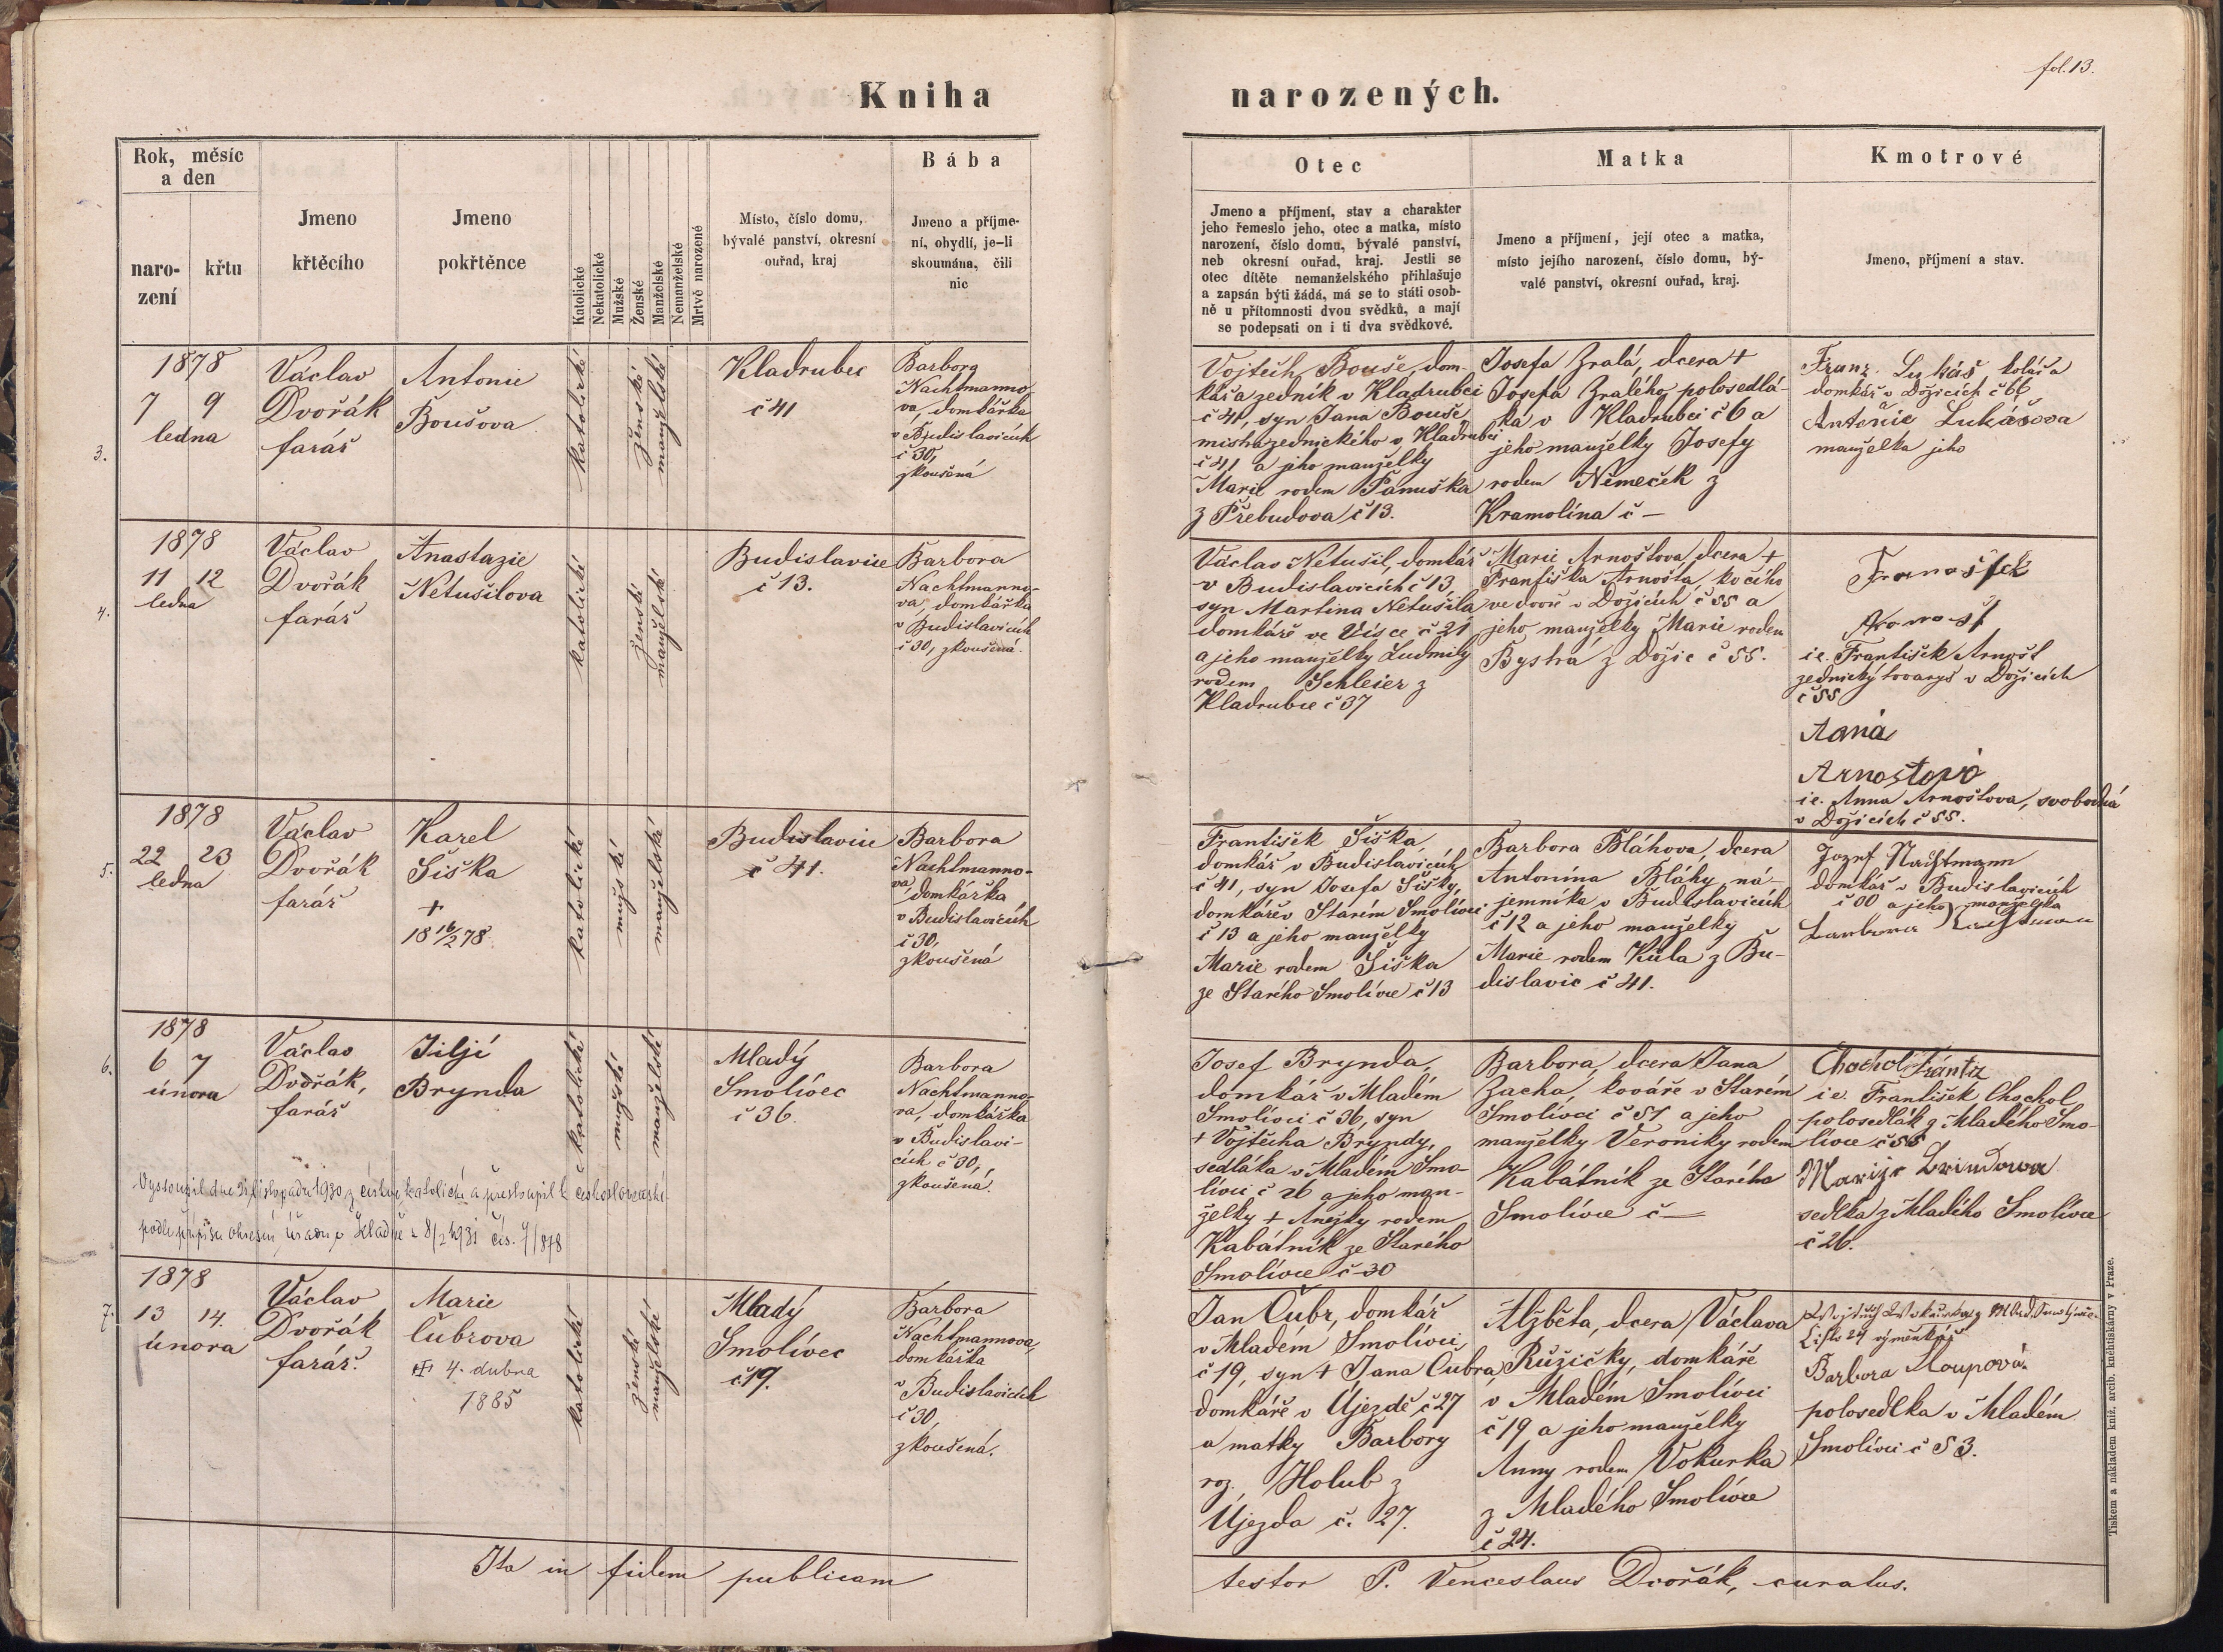 fol. 13.
Kniha narozených.
Rok, měsíc
a den
naro-
zení
křtu
Jmeno
křtěcího
Jmeno
pokřtěnce
Katolické
Nekatolické
Mužské
Ženské
Manželské
Nemanželské
Mrtvě narozené
Místo, číslo domu,
bývalé panství, okresní
ouřad, kraj
Bába
Jmeno a příjme-
ní, obydlí, je-li
skoumána, čili
nic
Otec
Jmeno a příjmení, stav a charakter
jeho řemeslo jeho, otec a matka, místo
narození, číslo domu, bývalé panství,
neb okresní ouřad, kraj. Jestli se
otec dítěte nemanželského přihlašuje
a zapsán býti žádá, má se to státi osob-
ně u přítomnosti dvou svědků, a mají
se podepsati on i ti dva svědkové.
Matka
Jmeno a příjmení, její otec a matka,
místo jejího narození, číslo domu, bý-
valé panství, okresní ouřad, kraj.
Kmotrové
Jmeno, příjmení a stav.
3.
1878
7 9
ledna
Václav
Dvořák
farář
Antonie
Boušova
katolické
ženské
manželské
Kladrubec
č 41
Barbora
Nachtmanno-
va, domkářka
v Budislavicích
č 30,
zkoušená
Vojtěch Bouše, dom-
kář a zedník v Kladrubci
č 41, syn Jana Bouše
mistra zednického v Kladrubci
č 41 a jeho manželky
Marie rodem Panuška
z Přebudova č 13.
Josefa Zralá, dcera +
Josefa Zralého polosedlá-
ka v Kladrubci č 6 a
jeho manželky Josefy
rodem Němeček z
Kramolína č —
Franz Lukáš kolář a
domkář v Dožicích č 66
Antonie Lukášova
manželka jeho
4.
1878
11 12
ledna
Václav
Dvořák
farář
Anastazie
Netušilova
katolické
ženské
manželské
Budislavice
č 13.
Barbora
Nachtmanno-
va, domkářka
v Budislavicích
č 30, zkoušená.
Václav Netušil, domkář
v Budislavicích č 13,
syn Martina Netušila
domkáře ve Vísce č 21
a jeho manželky Ludmily
rodem Schleier z
Kladrubce č 37
Marie Arnoštova dcera +
Františka Arnošta, kočího
ve dvoře v Dožicích č 55 a
jeho manželky Marie rodem
Bystrá z Dožic č 55.
František
Arnošt
i e. František Arnošt
zednický tovaryš v Dožicích
č 55
Anna
Arnoštová
i e. Anna Arnoštova, svobodná
v Dožicích č 55.
5.
1878
22 23
ledna
Václav
Dvořák
farář
Karel
Šiška
+
18 16/2 78.
katolické
mužské
manželské
Budislavice
č 41.
Barbora
Nachtmanno-
va, domkářka
v Budislavicích
č 30,
zkoušená
František Šiška,
domkář v Budislavicích
č 41, syn Josefa Šišky,
domkáře v Starém Smolivci
č 13 a jeho manželky
Marie rodem Šiška
ze Starého Smolivce č 13
Barbora Bláhova, dcera
Antonína Bláhy, ná-
jemníka v Budislavicích
č 12 a jeho manželky
Marie rodem Kula z Bu-
dislavic č 41.
Jozef Nachtmann
domkář v Budislavicích
č 30 a jeho manželka
Barbora Nachtmann
6.
1878
6 7
února
Václav
Dvořák,
farář
Jiljí
Brynda
katolické
mužské
manželské
Mladý
Smolivec
č 36.
Barbora
Nachtmanno-
va, domkářka
v Budislavi-
cích č 30,
zkoušená.
Vystoupil dne listopadu 1930 z církve katolické a přestoupil k československé
podle přípisu okresní úřadu v Kladně z 8/2 1931 čís. 7/878
Josef Brynda,
domkář v Mladém
Smolivci č 36, syn
+ Vojtěcha Bryndy,
sedláka v Mladém Smo-
livci č 26 a jeho man-
želky + Anežky rodem
Kabátník ze Starého
Smolivce č 30
Barbora, dcera Jana
Zacha, kováře v Starém
Smolivci č 51 a jeho
manželky Veroniky rodem
Kabátník ze Starého
Smolivce č —
Chochol Frántz
i e. František Chochol
polosedlák z Mladého Smo-
livce č 55
Marije Brindowa
sedlka z Mladého Smolivce
č 26.
7.
1878
13 14.
února
Václav
Dvořák
farář.
Marie
Čubrova
4. dubna
1885
katolické
ženské
manželské
Mladý
Smolivec
č 19.
Barbora
Nachtmannova,
domkářka
v Budislavicích
č 30,
zkoušená.
Jan Čubr, domkář
v Mladém Smolivci
č 19, syn + Jana Čubra,
domkáře v Újezdě č 27
a matky Barbory
roz. Holub z
Újezda č. 27.
Alžběta, dcera Václava
Růžičky, domkáře
v Mladém Smolivci
č 19 a jeho manželky
Anny rodem Vokurka
z Mladého Smolivce
č 24.
Číslo 24 výměnkář
Barbora Sloupová.
polosedlka v Mladém
Smolivci č 53.
Ita in fidem publicam
testor P. Venceslaus Dvořák, curatus.
Tiskem a nákladem kníž. arcib. knihtiskárny v Praze.